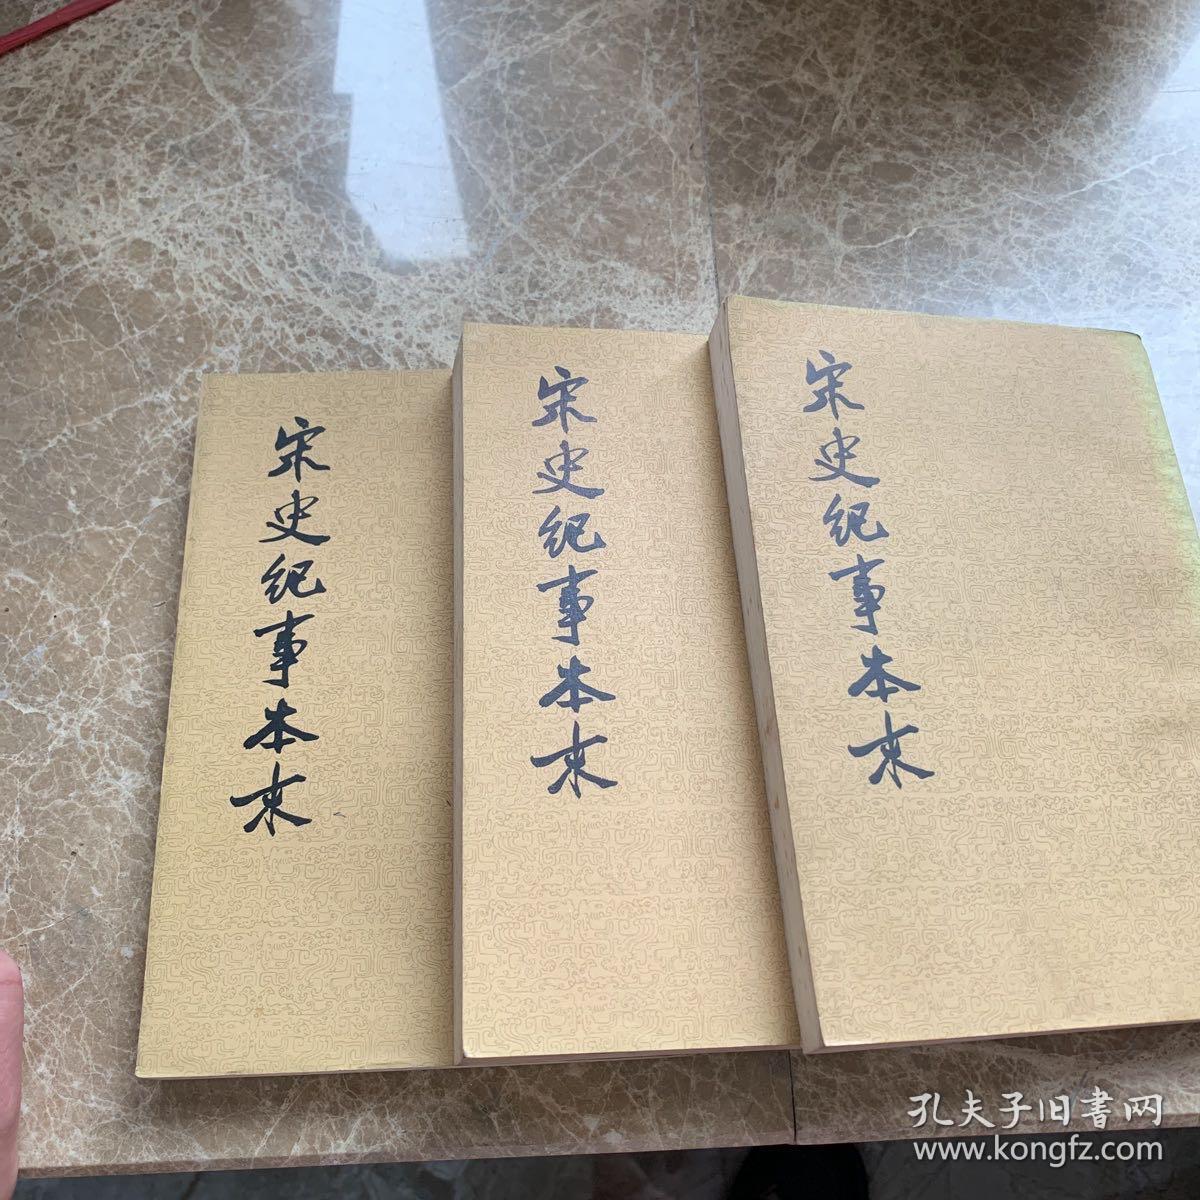 宋史紀事本末
宋史紀事本末
宋史紀事本末
孔夫子旧書网
www.kongfz.com